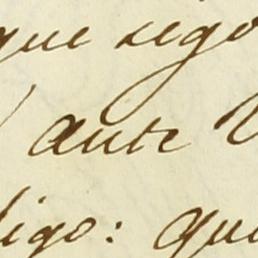 que sigo
ante V
digo: que